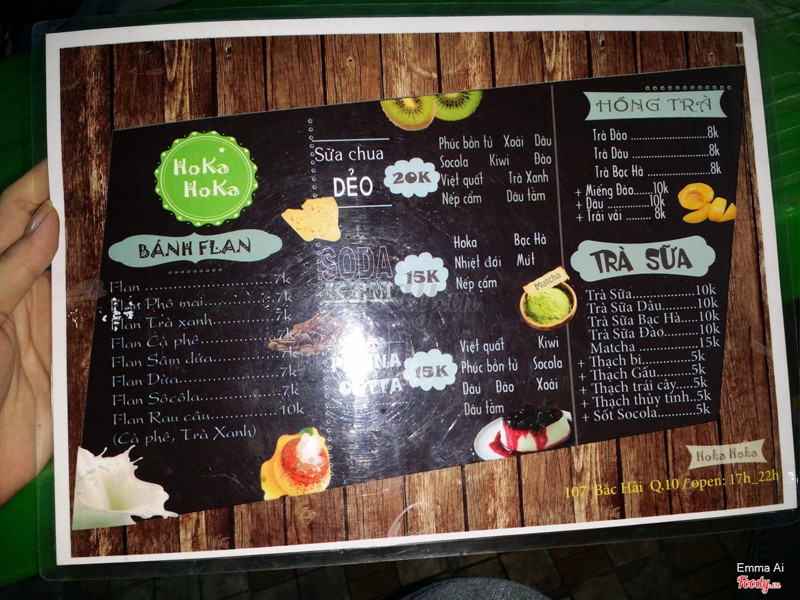 HoKa
HoKa
BÁNH FLAN
Flan ........................ 7k
Flan Phô mai ................ 7k
Flan Trà xanh ............... 7k
Flan Cà phê ................. 7k
Flan Sầm dứa ................ 7k
Flan Dừa .................... 7k
Flan Sôcôla ................. 7k
Flan Rau câu ................ 10k
(Cà phê, Trà Xanh)
Sữa chua
DẺO
20K
Phúc bồn tử Xoài Dâu
Socola Kiwi Đào
Việt quất Trà Xanh
Nếp cẩm Dâu tằm
SODA
KEM
15K
Hoka Bạc Hà
Nhiệt đới Mứt
Nếp cẩm
Matcha
COTTA
15K
Việt quất Kiwi
Phúc bồn tử Socola
Dâu Đào Xoài
Dâu tằm
HỒNG TRÀ
Trà Đào ..................... 8k
Trà Dâu ..................... 8k
Trà Bạc Hà .................. 8k
+ Miếng Đào ..... 10k
+ Dâu ........... 10k
+ Trái vải ...... 8k
TRÀ SỮA
Trà Sữa ..................... 10k
Trà Sữa Dâu ................. 10k
Trà Sữa Bạc Hà .............. 10k
Trà Sữa Đào ................. 10k
Matcha ...................... 15k
+ Thạch bi .................. 5k
+ Thạch Gấu ................. 5k
+ Thạch trái cây ............ 5k
+ Thạch thủy tinh ........... 5k
+ Sốt Socola ................ 5k
Hoka Hoka
107 Bắc Hải Q.10 / open: 17h_22h
Emma Ai
Foody.vn